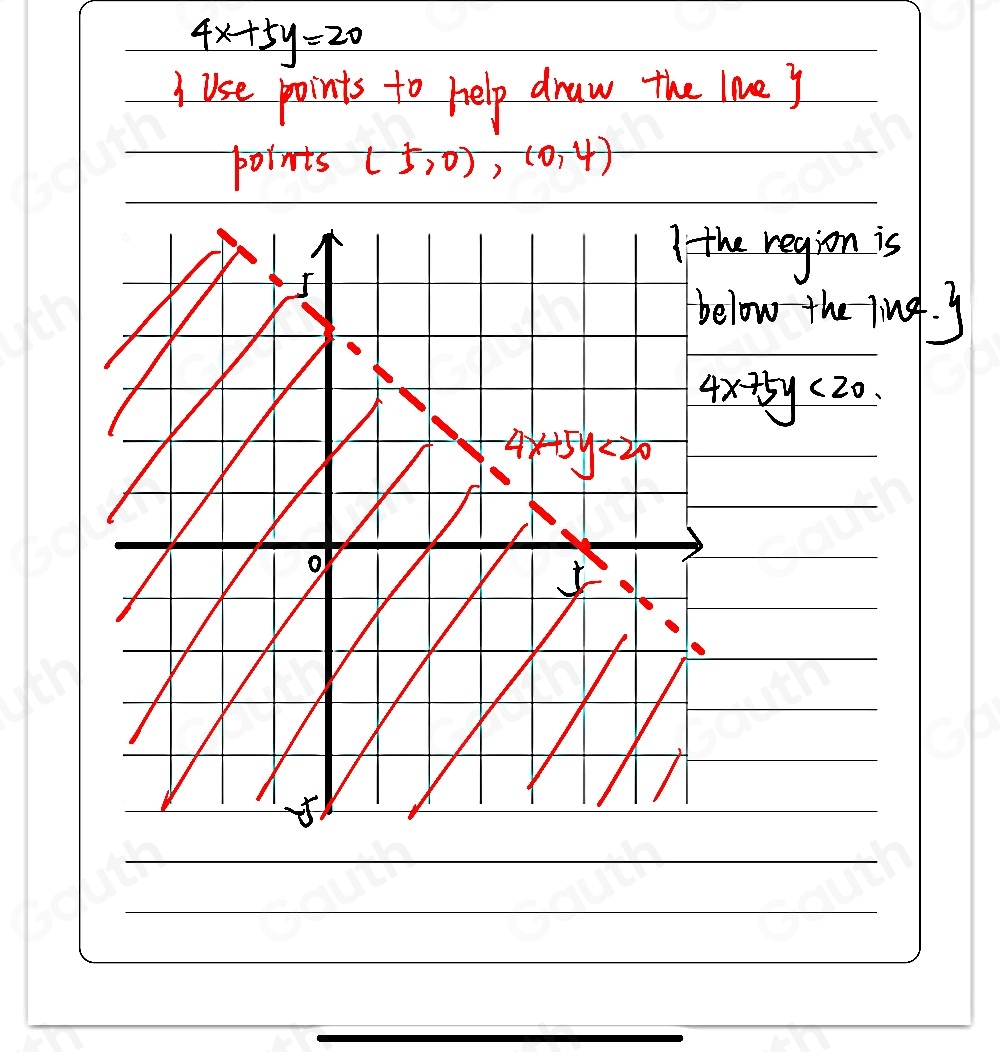 4x+5y=20
{ Use points to help draw the line }
points (5,0), (0,4)
{ the region is
below the line. }
4x+5y<20.
5
4x+5y<20
0
5
-5
Gauth